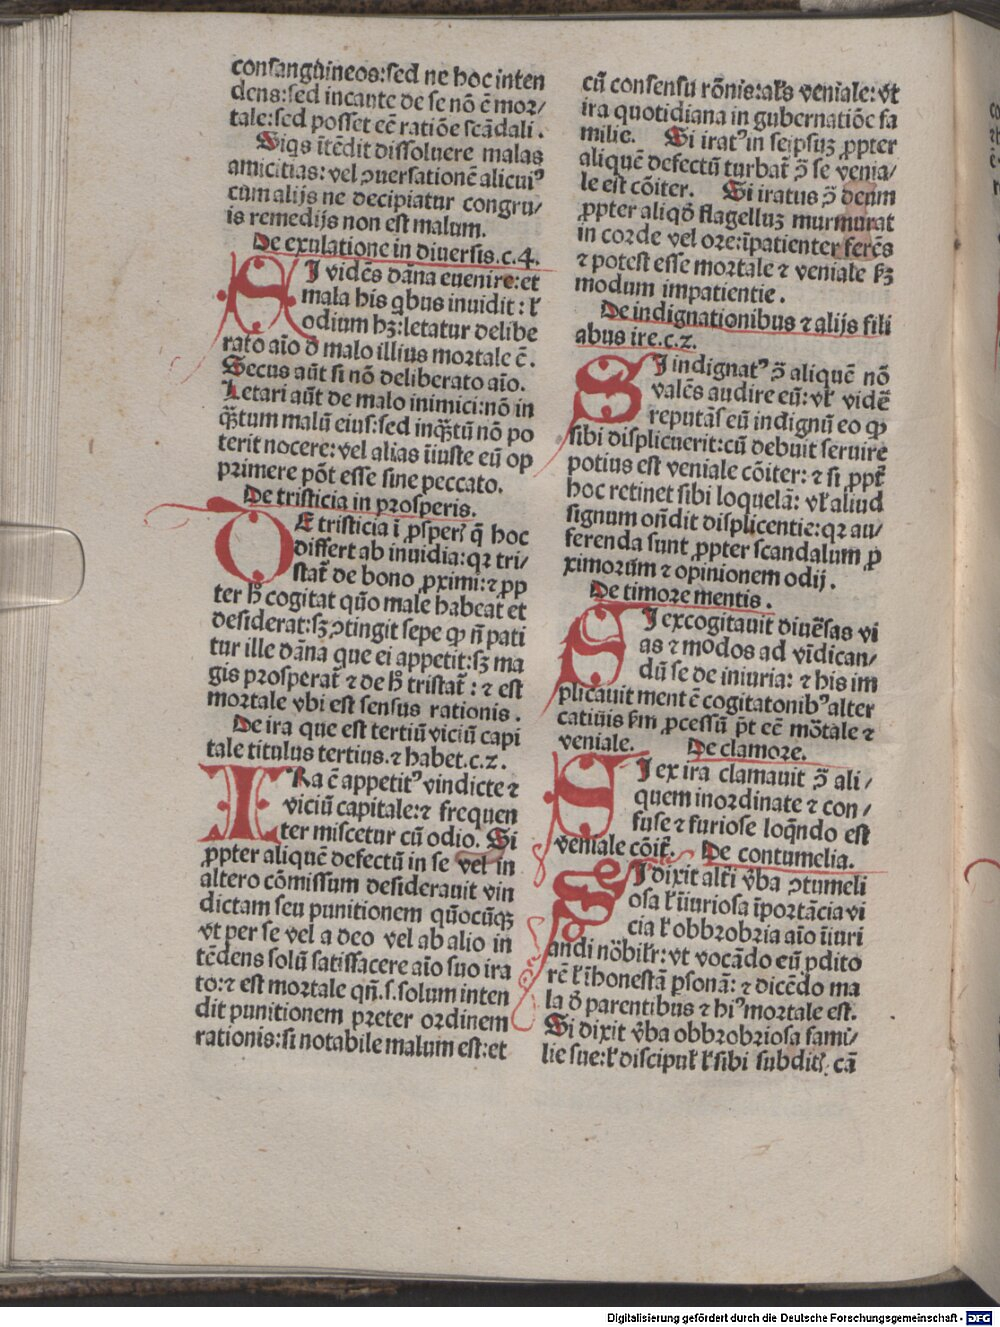 consangůineos:sed ne hoc inten
dens:sed incaute de se nō ē mor/
tale:sed posset eē ratiōe scādali.
Siqs ītēdit dissoluere malas
amicitias: vel ꝯuersationē alicuiꝰ
cum alijs ne decipiatur congru/
is remedijs non est malum.
De exulatione in diuersis.c.4.
SI vidēs dāna euenire:et
mala his qbus inuidit: ł
odium hꝫ:letatur delibe
rato aīo ď malo illius mortale ē.
Secus aūt si nō deliberato aīo.
Letari aūt de malo inimici:nō in
q̄tum malū eius:sed inq̄tū nō po
terit nocere: vel alias īiuste eū op
primere pōt esse sine peccato.
De tristicia in prosperis.
DE tristicia ī ꝓsperꝭ q̄ hoc
differt ab inuidia:qꝛ tri/
stat̄ de bono ꝓximi:ꝛ ꝓp
ter h̄ cogitat quō male habeat et
desiderat:sꝫ ꝯtingit sepe ꝙ n̄ pati
tur ille dāna que ei appetit:sꝫ ma
gis prosperat̄ ꝛ de h̄ tristat̄: ꝛ est
mortale vbi est sensus rationis.
De ira que est tertiū viciū capi
tale titulus tertius.ꝛ habet.c.2.
IRa ē appetitꝰ vindicte ꝛ
viciū capitale:ꝛ frequen
ter miscetur cū odio. Si
ꝓpter aliquē defectū in se vel in
altero cōmissum desiderauit vin
dictam seu punitionem quōcūqꝫ
vt per se vel a deo vel ab alio in
tēdens solū satisfacere aīo suo ira
to:ꝛ est mortale qn̄.s.solum inten
dit punitionem preter ordinem
rationis:si notabile malum est:et
cū consensu rōnis:ałs veniale: vt
ira quotidiana in gubernatiōe fa
milie. Si iratꝰ in seipsuꝫ ꝓpter
aliquē defectū turbat̄ ꝯ̄ se venia/
le est cōiter. Si iratus ꝯ̄ deum
ꝓpter aliqď flagelluꝫ murmurat
in corde vel ore:īpatienter ferēs
ꝛ potest esse mortale ꝛ veniale ẜꝫ
modum impatientie.
De indignationibus ꝛ alijs fili
abus ire.c.2.
SI indignatꝰ ꝯ̄ aliquē nō
valēs audire eū: vł vidē
reputās eū indignū eo ꝙ
sibi displicuerit:cū debuit seruire
potius est veniale cōiter: ꝛ si ꝓpt̄
hoc retinet sibi loquelā: vł aliud
signum oñdit displicentie:qꝛ au/
ferenda sunt ꝓpter scandalum ꝓ
ximorum ꝛ opinionem odij.
De timore mentis.
SI excogitauit diuēsas vi
as ꝛ modos ad vīdican/
dū se de iniuria: ꝛ his im
plicauit mentē cogitatonibꝰ alter
catiuis ẜm ꝓcessū p̄t eē mōtale ꝛ
veniale. De clamore.
SI ex ira clamauit ꝯ̄ ali/
quem inordinate ꝛ con/
fuse ꝛ furiose loq̄ndo est
veniale cōit̄. De contumelia.
SI dixit alt̄i v̄ba ꝯtumeli
osa ł īiuriosa īportācia vi
cia ł obbrobria aīo īiuri
andi nōbiłr: vt vocādo eū ꝓdito
rē ł īhonestā ꝑsonā: ꝛ dicēdo ma
la ď parentibus ꝛ hiꝰ mortale est.
Si dixit v̄ba obbrobriosa fami/
lie sue:ł discipuł ł sibi subditꝭ, cā
Digitalisierung gefördert durch die Deutsche Forschungsgemeinschaft - DFG